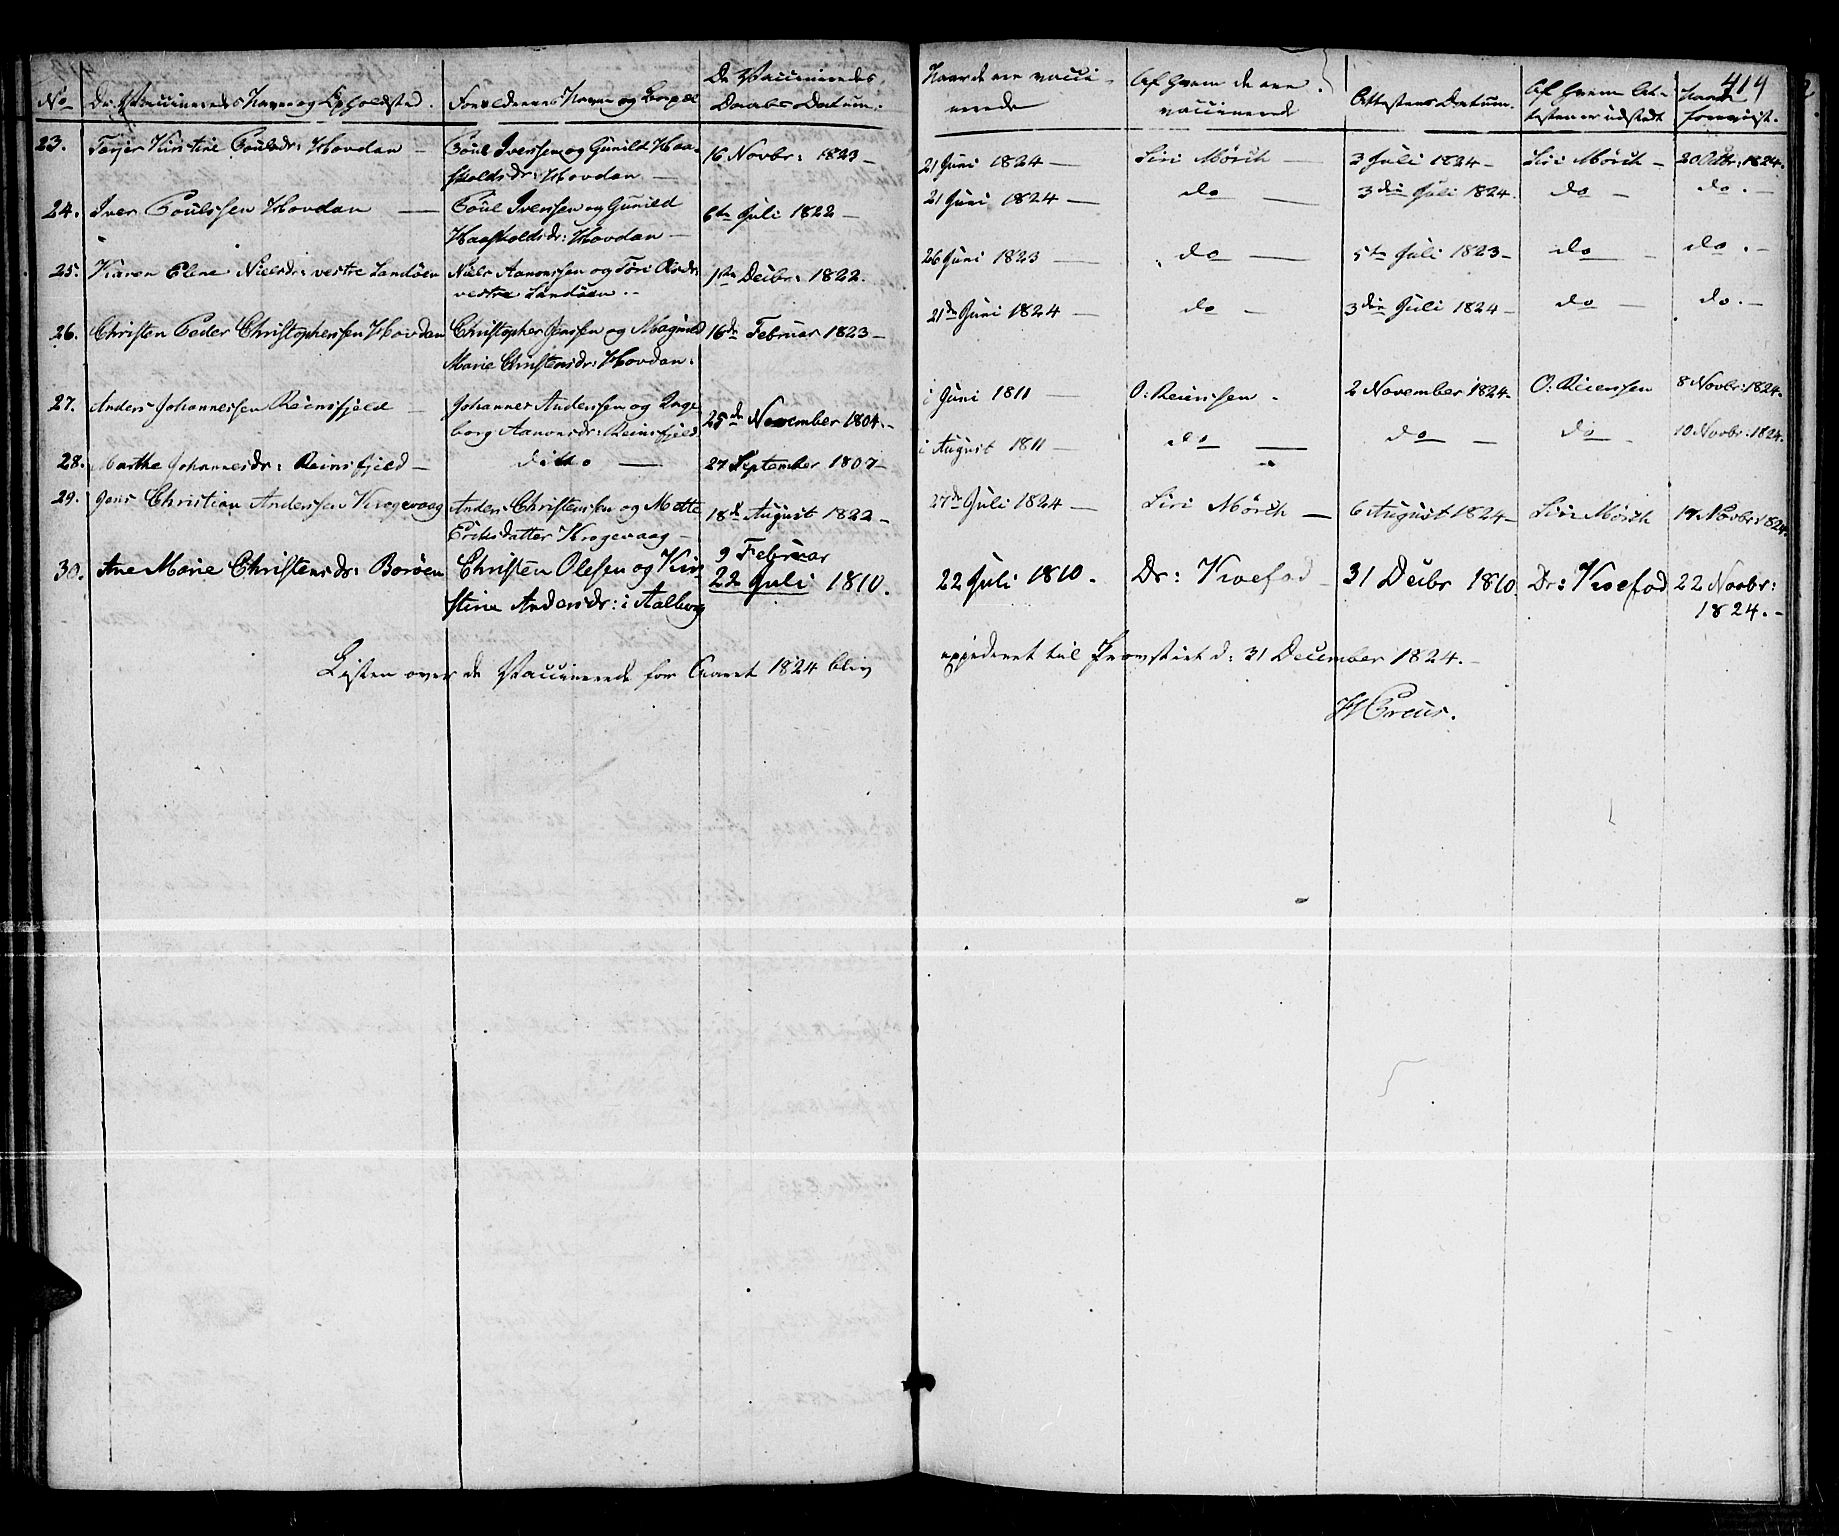 414
No
De Vaccineredes Navne og Opholdsted.
Forældrenes Navne og Bopæl
De Vaccineredes
Daabs-Datum.
Naar de ere vacci-
nerede
Af Hvem de ere
vaccinerede
Attestens Datum.
Af Hvem At-
testen er udstedt
Naar
forevist.
23. Torjer Kirstine Poulsdr: Hovdan —
Poul Iverssen og Gunild Haa-
skoldsdr: Hovdan —
16 Novbr: 1823 —
21 Juni 1824 —
Siri Mörch —
3 Juli 1824 —
Siri Mörch —
20 Octbr: 1824.
24. Iver Poulssen Hovdan —
Poul Iverssen og Gunild
Haaskoldsdr: Hovdan —
6te Juli 1822 —
21 Juni 1824 —
do —
3die Juli 1824.
do —
do. —
25. Karen Elene Nielsdr: vestre Landöen
Niels Aanonssen og Töri
vestre Landöen. —
1ste Decbr: 1822.
26 Juni 1823 —
do —
5te Juli 1823 —
do —
do. —
26. Christen Peder Christopherssen Hovdan
Christopher Jenssen og
Marie Christensdr: Hovdan.
16de Februar 1823 —
21de Juni 1824 —
do —
3die Juli 1824 —
do —
do. —
27. Anders Johannessen Reinsfjeld —
Johannes Anderssen og Inge-
borg Aanonsdr: Reinsfjeld.
25de November 1804. —
i Juni 1811 —
O: Reierssen —
2 November 1824.
O: Reierssen
8 Novbr: 1824.
28. Marthe Johannesdr: Reinsfjeld —
ditto —
27 September 1807 —
i August 1811 —
do —
do —
do —
10 Novbr: 1824.
29. Jens Christian Anderssen Krogevaag
Anders Christenssen og Mette
Eriksdatter Krogevaag —
18de August 1822 —
27de Juli 1824 —
Siri Mörch —
6 August 1824 —
Siri Mörch
17 Novbr: 1824.
30. Ane Marie Christensdr: Boröen
Christen Olessen og Kir-
stine Andersdr: i Aalborg
9 Februar
22 Juli 1810.
22 Juli 1810.
Dr: Koefod —
31 Decbr 1810
Dr: Koefod
22 Novbr:
1824. —
Listen over de Vaccinerede for Aaret 1824 blev expederet til Provstiet d: 31 December 1824. —